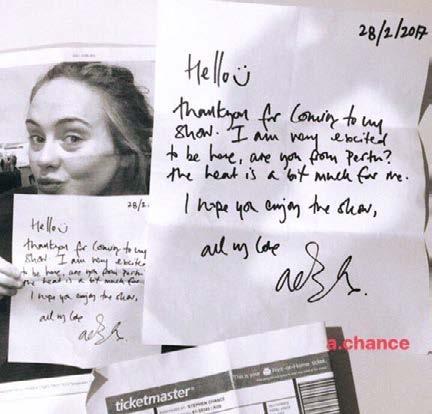 28/2/2017
Hello
thankyou for coming to my
show. I am very excited
to be here, are you from Perth?
the heat is a bit much for me.
I hope you enjoy the show,
all my love
28/2
Hello
thankyou for coming to my
show I am very excited
to be here, are you from Perth
the heat is a bit much for
I hope you enjoy the show,
all my love
a.chance
ticketmaster
This is your Print-at-Home ticket.
STEPHEN CHANCE